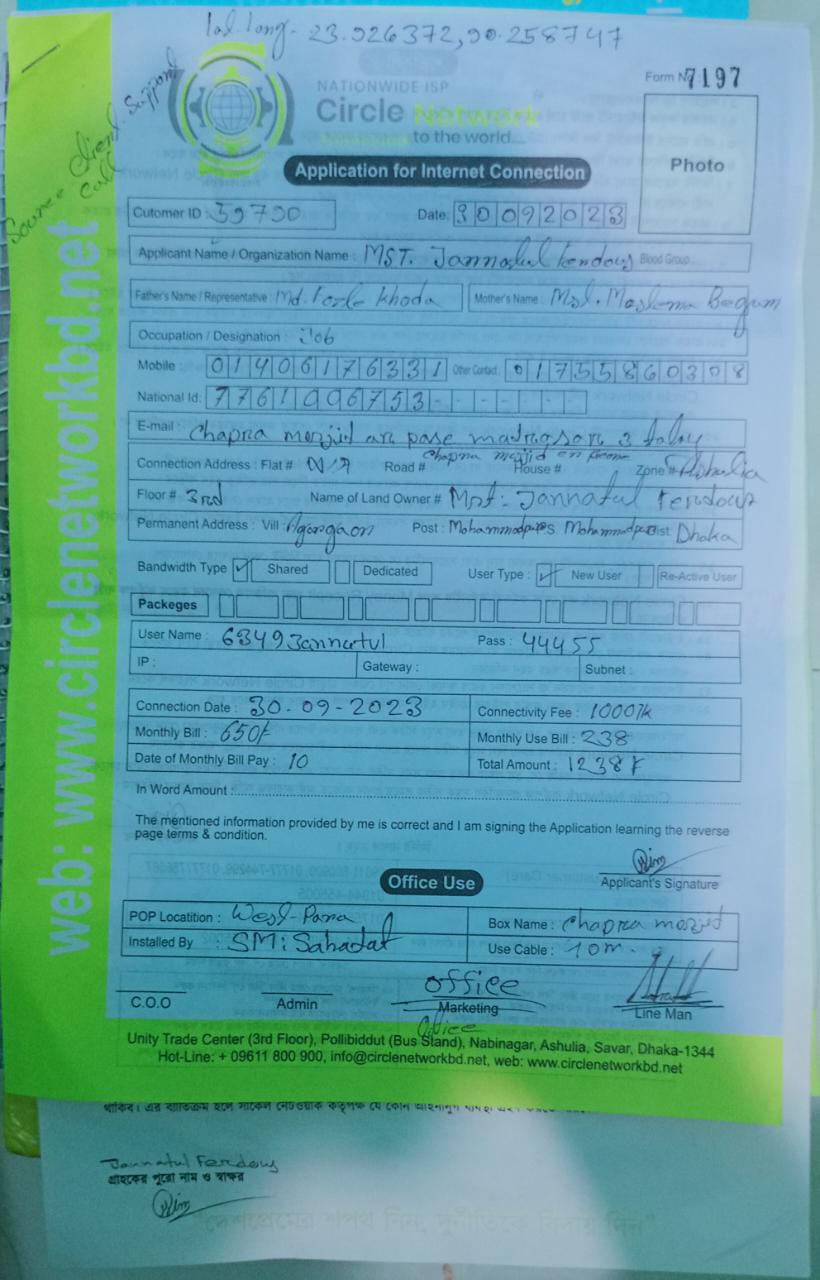 lat. long- 23.926372,90.258747
Source - Client Support
Call
NATIONWIDE ISP
Circle Network
to the world...
Form No 7197
Photo
Application for Internet Connection
Cutomer ID : 39790 Date: 30092023
Applicant Name / Organization Name : MST. Jannatul Ferdous Blood Group
Father's Name / Representative : Md. Fozle Khoda Mother's Name : Mst. Maslema Begum
Occupation / Designation : Job
Mobile : 01406176331 Other Contact : 01755860308
National Id: 7761996753-
E-mail : Chapra morjid ar pase madrasar 3 talay
Connection Address : Flat # N/A Road # Chapra mosjid House # Zone # Ashulia
Floor # 3rd Name of Land Owner # Mst: Jannatul Ferdous
Permanent Address : Vill Agargaon Post : Mohammadpur P.S. Mohammadpur Dist Dhaka
Bandwidth Type ✓ Shared Dedicated User Type : ✓ New User Re-Active User
Packeges
User Name : 6349Jannatul Pass : 44455
IP : Gateway : Subnet :
Connection Date : 30-09-2023 Connectivity Fee : 1000Tk
Monthly Bill : 650/- Monthly Use Bill : 238
Date of Monthly Bill Pay : 10 Total Amount : 1238
In Word Amount :
The mentioned information provided by me is correct and I am signing the Application learning the reverse
page terms & condition.
Applicant's Signature
Office Use
POP Locatition : West-Para Box Name : Chapra mozjid
Installed By : SM: Sahadat Use Cable : 10m.
office
C.O.O Admin Marketing Line Man
Office
Unity Trade Center (3rd Floor), Pollibiddut (Bus Stand), Nabinagar, Ashulia, Savar, Dhaka-1344
Hot-Line: + 09611 800 900, info@circlenetworkbd.net, web: www.circlenetworkbd.net
web: www.circlenetworkbd.net
Jannatul Ferdous
গ্রাহকের পুরো নাম ও স্বাক্ষর
"দেশপ্রেমের শপথ নিন, দুর্নীতিকে বিদায় দিন"